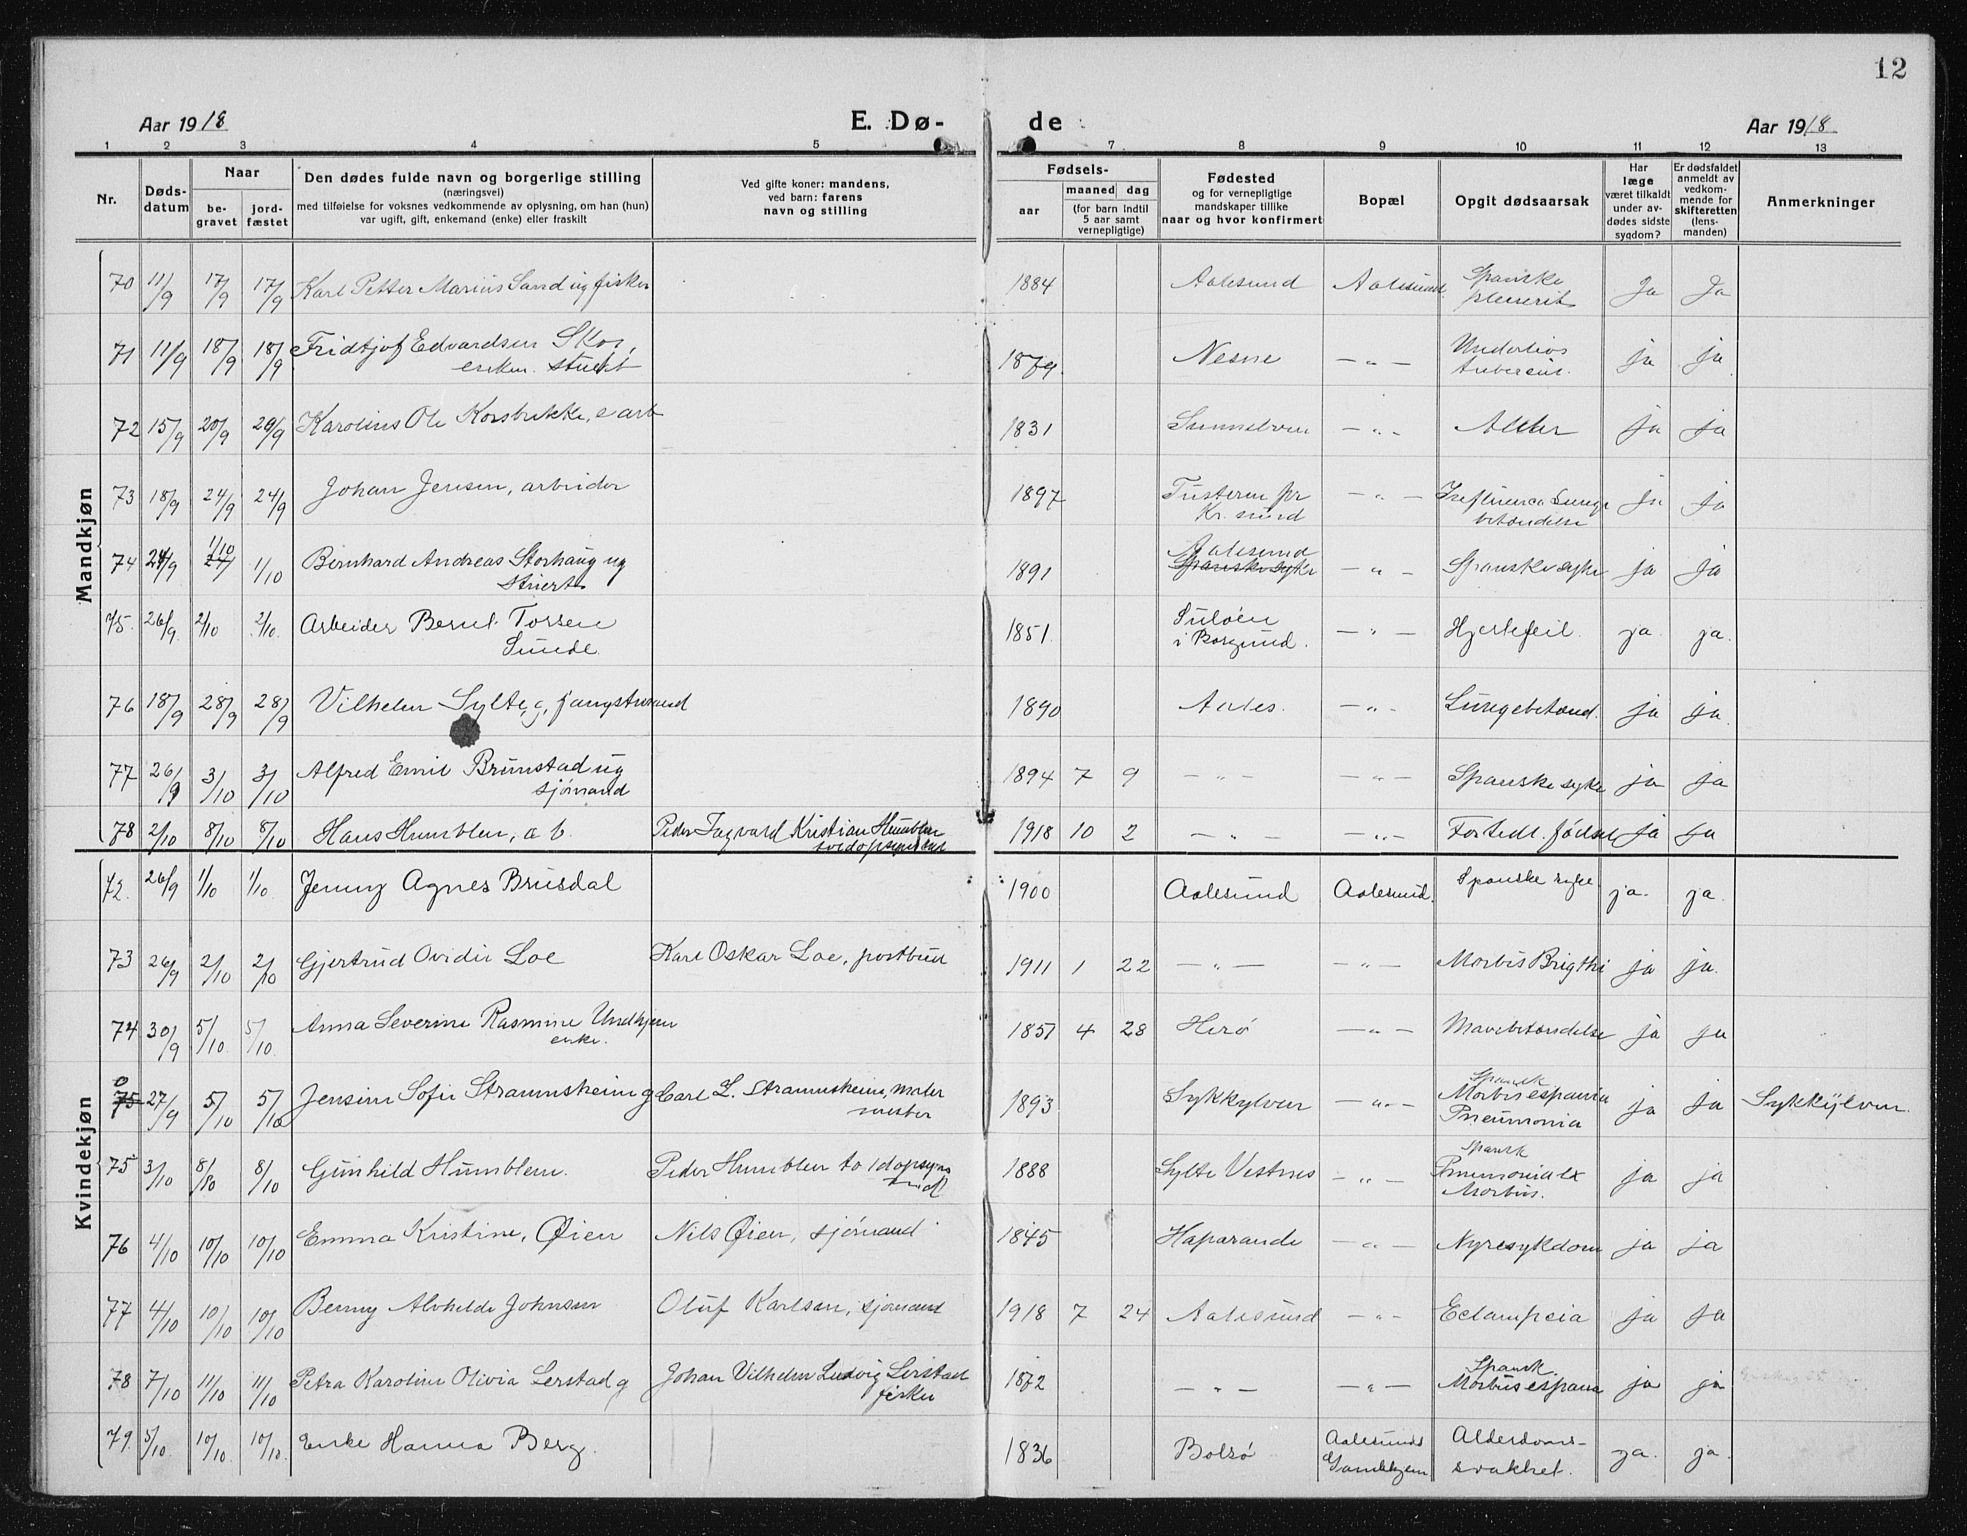 12
Aar 1918 E. Dø- de Aar 1918
1 2 3 4 5 7 8 9 10 11 12 13
Nr. Døds-datum Naar be-gravet jord-fæstet Den dødes fulde navn og borgerlige stilling (næringsvei) med tilføielse for voksnes vedkommende av oplysning, om han (hun) var ugift, gift, enkemand (enke) eller fraskilt Ved gifte koner: mandens, ved barn: farens navn og stilling Fødsels- aar maaned dag (for barn indtil 5 aar samt vernepligtige) Fødested og for vernepligtige mandskaper tillike naar og hvor konfirmert Bopæl Opgit dødsaarsak Har læge været tilkaldt under av-dødes sidste sygdom? Er dødsfaldet anmeldt av vedkom-mende for skifteretten (lens-manden) Anmerkninger
Mandkjøn
70 11/9 17/9 17/9 Karl Petter Marius Sand ug fisker 1884 Aalesund Aalesund Spanske pleurit Ja Ja
71 11/9 18/9 18/9 Fridtjof Edvardsen Skor, enkem. stuert 1879 Nesne —"— ja ja
72 15/9 20/9 20/9 Karolius Ole Korsbrekke, e arb 1831 Sunnelven —"— Alder ja ja
73 18/9 24/9 24/9 Johan Jensen, arbeider 1897 Tusteren pr Kr. sund —"— Influenca Lunge betændelse ja ja
74 24/9 1/10 1/10 Bernhard Andreas Storhaug ug Stuert 1891 Aalesund Spanske syke —"— Spanske syke ja ja
75. 26/9 2/10 2/10. Arbeider Bernt Torsen Sunde. 1851. Suløen i Borgund. —"— Hjertefeil. ja. ja.
76 18/9 28/9 28/9 Vilhelm Sylte, g, fangstmand 1890 Aales. —"— Lungebetænd. ja ja.
77 26/9 3/10 3/10 Alfred Emil Brunstad ug sjømand 1894 7 9 —"— —"— Spanske syke ja ja
78 2/10 8/10 8/10 Hans Humblen, a b. Peder Ingvard Kristian Humblen 1918 10 2 —"— —"— For tidl. fødsel ja ja
Kvindekjøn
72. 26/9 1/10 1/10 Jenny Agnes Brusdal 1900 Aalesund Aalesund. Spanske syke ja. ja.
73 26/9 2/10 2/10 Gjertrud Ovidie Loe Karl Oskar Loe, postbud 1911 1 22 —"— —"— Morbis Brigthi ja ja.
74 30/9 5/10. 5/10. Anna Severine Rasmine Undhjem enke. 1857 4 28 Herø —"— Mavebetændelse ja ja
0 75 27/9 5/10 5/10 Jensine Sofie Straumsheim g Carl L. Straumsheim, maler mester 1893 Sykkylven —"— Spansk Morbis espania Pneumonia ja ja Sykkylven.
75 3/10 8/10 8/10 Gunhild Humblen. Peder Humblen 1888 Sylte Vestnes —"— Spansk Pneumonia ex Morbus. ja ja
76 4/10 10/10 10/10 Emma Kristine, Øien Nils Øien, sjømand 1845 Haparande —"— Nyresykdom ja ja
77 4/10 10/10 10/10 Benny Alvhilde Johnsen Oluf Karlsen, sjømand 1918 7 24 Aalesund —"— Eclampsia ja ja
78 7/10 11/10 11/10 Petra Karoline Olivia Lerstad g Johan Vilhelm Ludvig Lerstad fisker 1872 —"— —"— Spansk Morbus espana ja ja
79. 5/10. 10/10 10/10. Enke Hanna Berg. 1836 Bolsø Aalesunds Gamlehjem Alderdoms-svakhet. ja. ja.